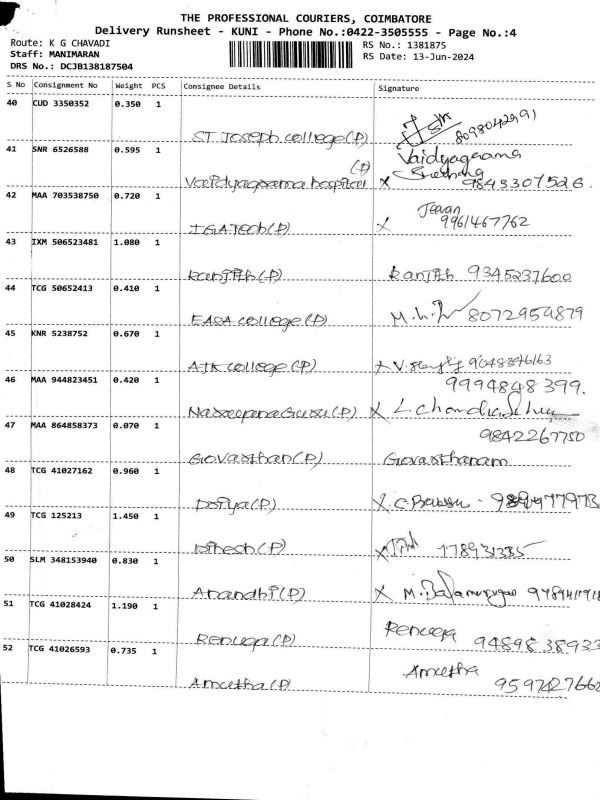 THE PROFESSIONAL COURIERS, COIMBATORE
Delivery Runsheet - KUNI - Phone No.:0422-3505555 - Page No.:4
Route: K G CHAVADI
RS No.: 1381875
Staff: MANIMARAN
RS Date: 13-Jun-2024
DRS No.: DCJB138187504
S No Consignment No Weight PCS Consignee Details Signature
40 CUD 3350352 0.350 1
ST Joseph college(P) 8098042991
41 SNR 6526588 0.595 1
Vaidyagrama
(P)
Vaidyagrama hospital X 9843307526.
42 MAA 703538750 0.720 1
Jeevan
IGATech(P) X 9961467762
43 IXM 506523481 1.080 1
Ranjith(P) Ranjith 9345237600
44 TCG 50652413 0.410 1
EASA college(P) 8072959879
45 KNR 5238752 0.670 1
AJK college(P) X
46 MAA 944823451 0.420 1
9994848399.
(P) X L
47 MAA 864858373 0.070 1
9842267750
Govarthan(P) Govarthanam
48 TCG 41027162 0.960 1
(P) X. C.
49 TCG 125213 1.450 1
Dinesh(P) X
50 SLM 348153940 0.830 1
Anandhi(P) X M. Balamurugan
51 TCG 41028424 1.190 1
Renuga
Renuga(P) 9489838933
52 TCG 41026593 0.735 1
Amutha
Amutha(P) 9597427662